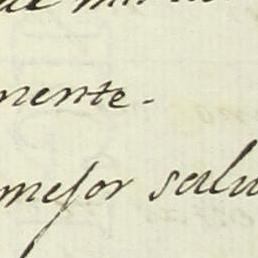 mente.
mejor salu